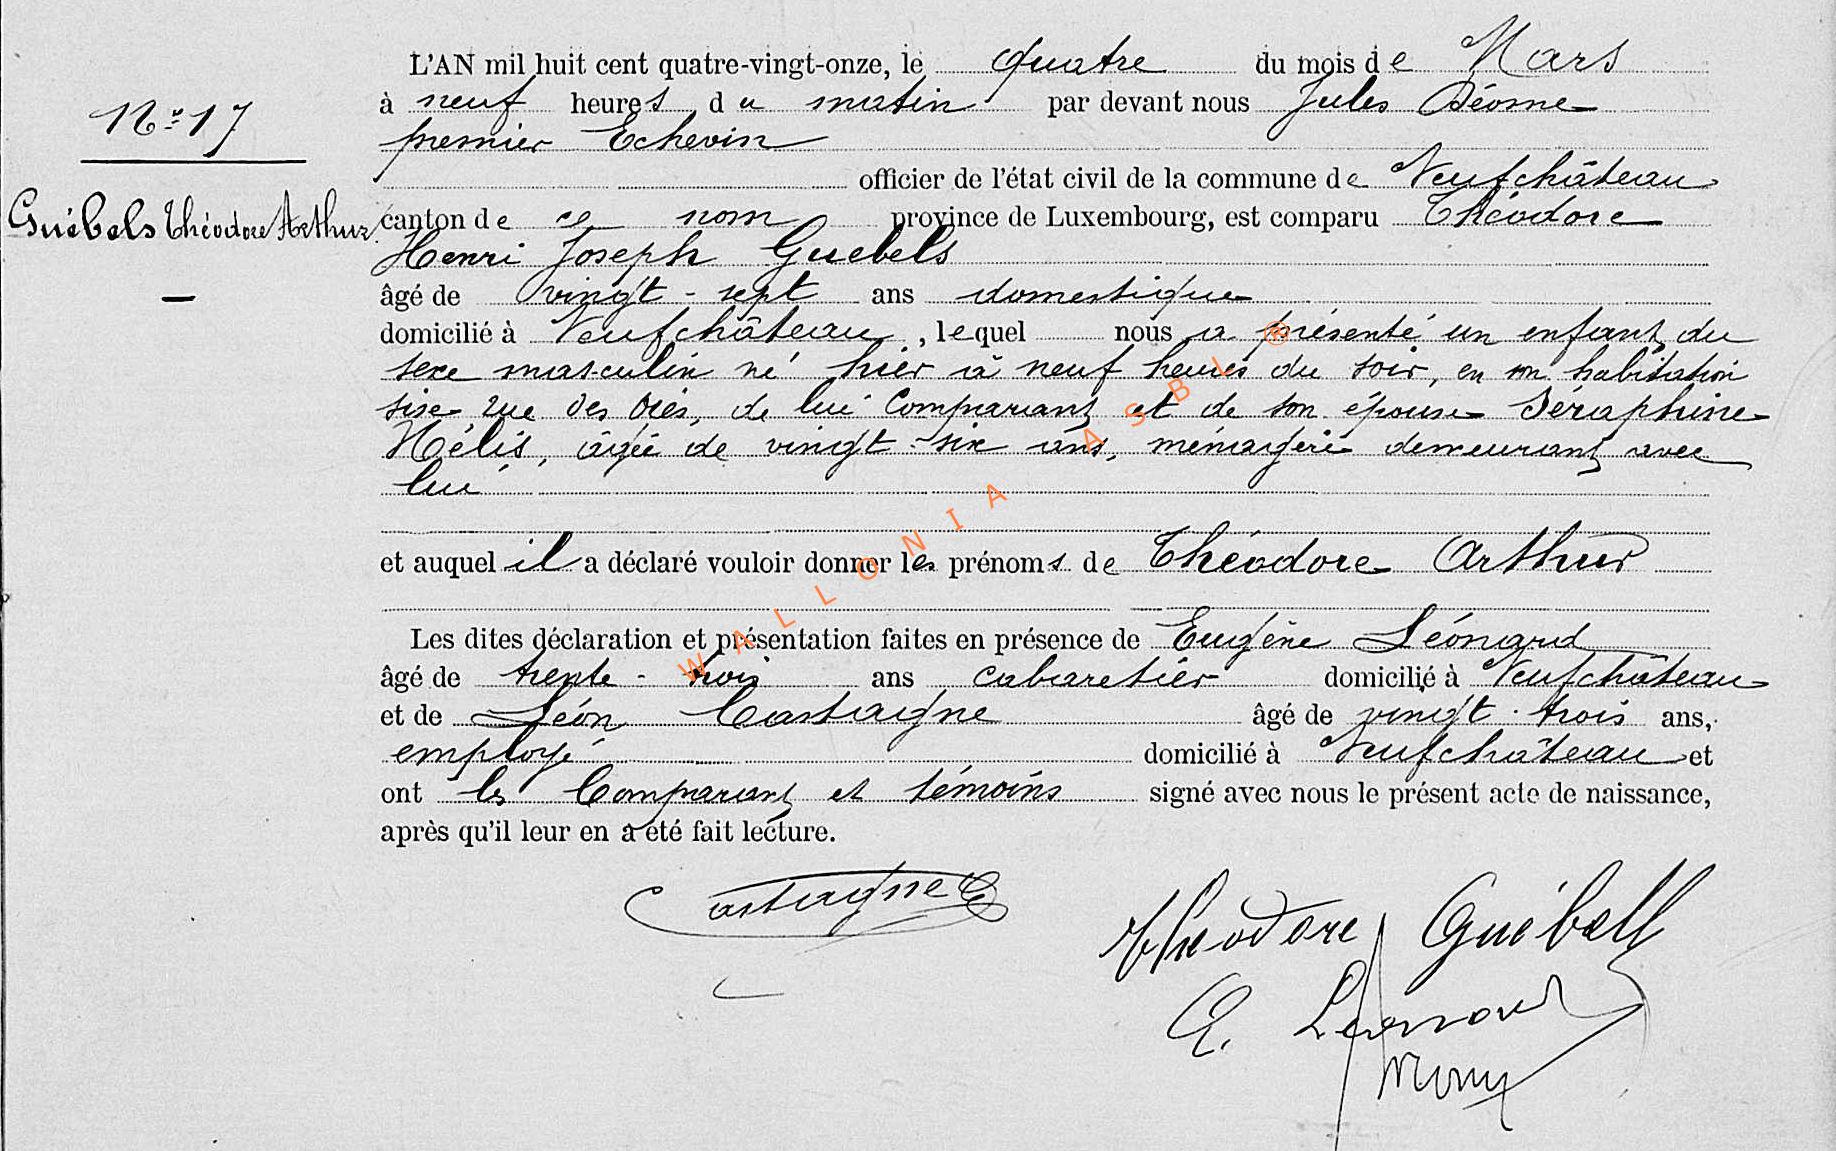 L'AN mil huit cent quatre-vingt-onze, le quatre du mois de Mars
N° 17
à neuf heures du matin par devant nous Jules
premier Echevin
officier de l'état civil de la commune de Neufchâteau
Guébels Théodore Arthur
canton de ce nom province de Luxembourg, est comparu Théodore
Henri Joseph Guebels
âgé de vingt-sept ans domestique
domicilié à Neufchâteau, lequel nous a présenté un enfant du
sexe masculin né hier à neuf heures du soir, en son habitation
sise rue des, de lui Comparant et de son épouse Séraphine
Hélis, âgée de vingt-six ans, ménagère demeurant avec
lui
et auquel il a déclaré vouloir donner les prénoms de Théodore Arthur
Les dites déclaration et présentation faites en présence de Eugène Léonard
âgé de trente-trois ans, cabaretier domicilié à Neufchâteau
et de Léon Castaigne âgé de vingt-trois ans,
employé domicilié à Neufchâteau et
ont les Comparant et témoins signé avec nous le présent acte de naissance,
après qu'il leur en a été fait lecture.
Castaigne
Théodore Guébels
E. Léonard
WALLONIA ASBL ®